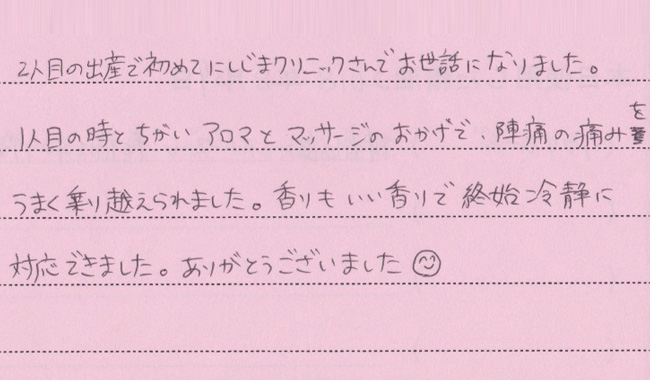 2人目の出産で初めてにしじまクリニックさんでお世話になりました。
1人目の時とちがい アロマと マッサージのおかげで、陣痛の痛みを
うまく乗り越えられました。香りもいい香りで終始冷静に
対応できました。ありがとうございました☺